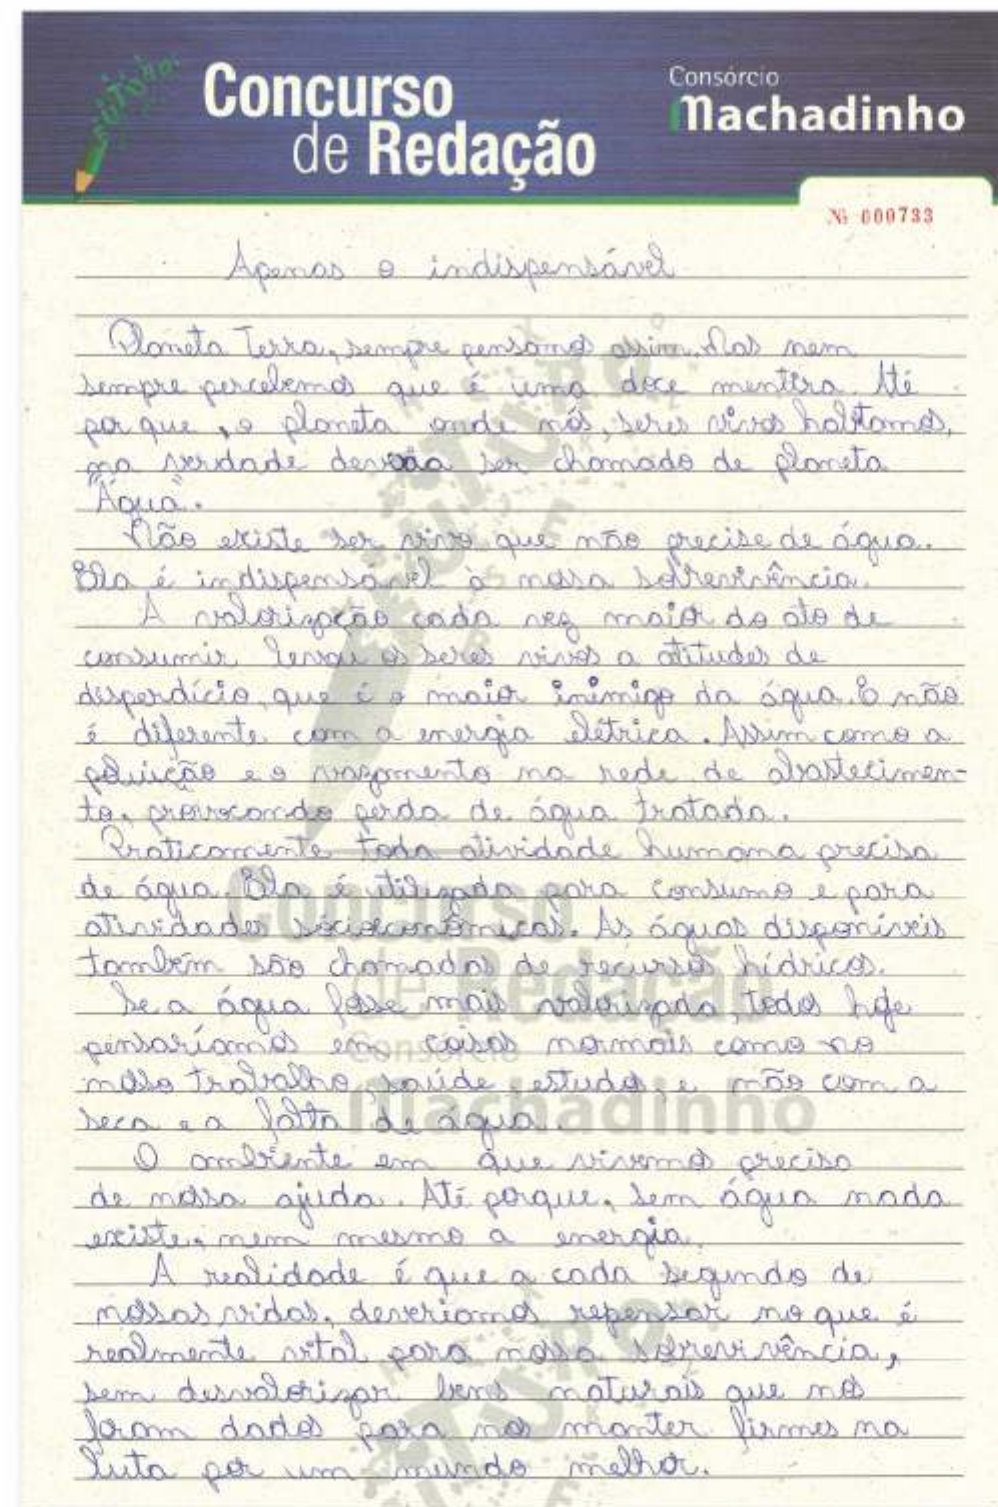 Futuro
Concurso
de Redação
Consórcio
Machadinho
Nº 000733
Apenas o indispensável
Planeta Terra, sempre pensamos assim. Mas nem
sempre percebemos que é uma doce mentira. Até
por que, o planeta onde nós, seres vivos habitamos,
na verdade deveria ser chamado de planeta
"Água".
Não existe ser vivo que não precise de água.
Ela é indispensável à nossa sobrevivência.
A valorização cada vez maior do ato de
consumir, levou os seres vivos a atitudes de
disperdício, que é o maior inimigo da água. E não
é diferente com a energia elétrica. Assim como a
poluição e o vazamento na rede de abastecimen-
to, provocando perda de água tratada.
Praticamente toda atividade humana precisa
de água. Ela é utilizada para consumo e para
atividades sócioeconômicas. As águas disponíveis
também são chamadas de recursos hídricos.
Se a água fosse mais valorizada, todos hoje
pensaríamos em coisas normais como no
nosso trabalho, saúde, estudos, e não com a
seca e a falta de água.
O ambiente em que vivemos precisa
de nossa ajuda. Até porque, sem água nada
existe, nem mesmo a energia.
A realidade é que a cada segundo de
nossas vidas, deveríamos repensar no que é
realmente vital para nossa sobrevivência,
sem desvalorizar bens naturais que nos
foram dados para nos manter firmes na
luta por um mundo melhor.